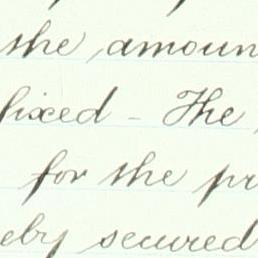 the amoun
fixed - The
for the pr
eby secured